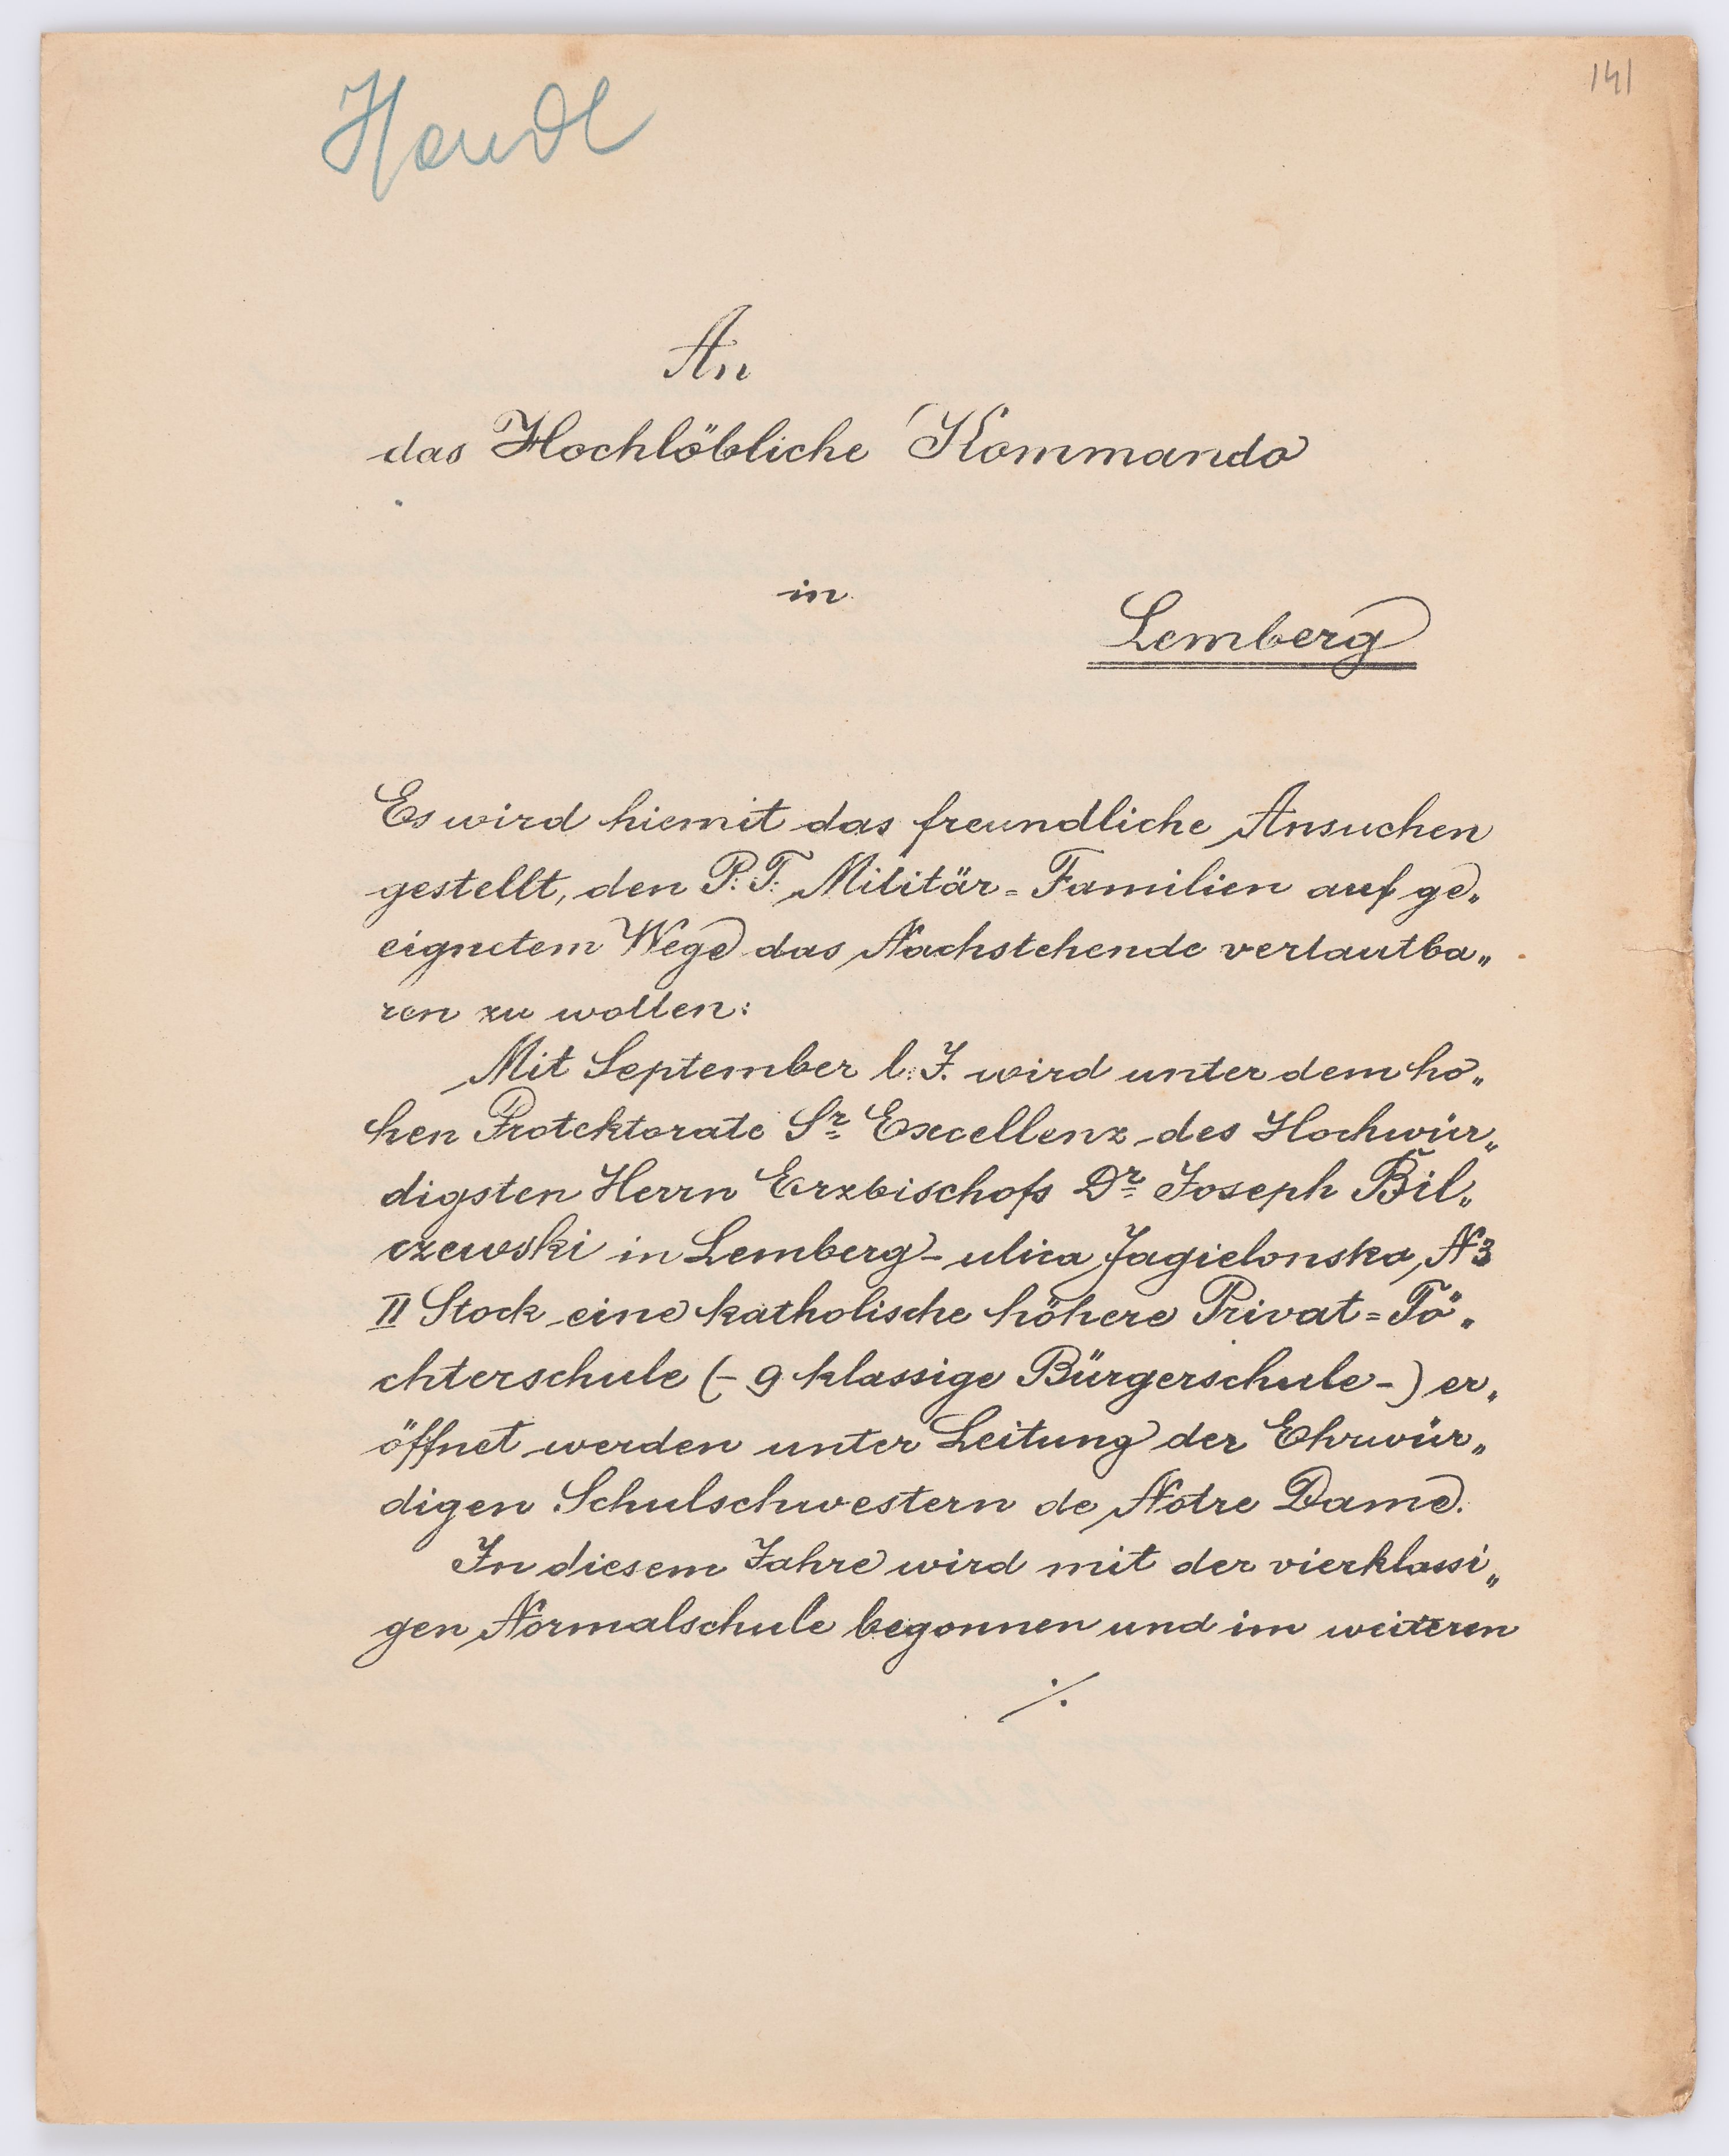 141
An
das Hochlöbliche Kommando
in
Lemberg
Es wird hiemit das freundliche Ansuchen
gestellt, den P. T. Militär=Familien auf ge„
eignetem Wege das Nachstehende verlautba„
ren zu wollen:
Mit September l. J. wird unter dem ho„
hen Protektorate Sr Excellenz des Hochwür„
digsten Herrn Erzbischofs Dr Joseph Bil„
czewski in Lemberg - ulica Jagielonska, N 3
II Stock eine katholische höhere Privat=Tö„
chterschule (- 9 klassige Bürgerschule -) er„
öffnet werden unter Leitung der Ehrwür„
digen Schulschwestern de Notre Dame.
In diesem Jahre wird mit der vierklassi„
gen Normalschule begonnen und im weiteren
./.